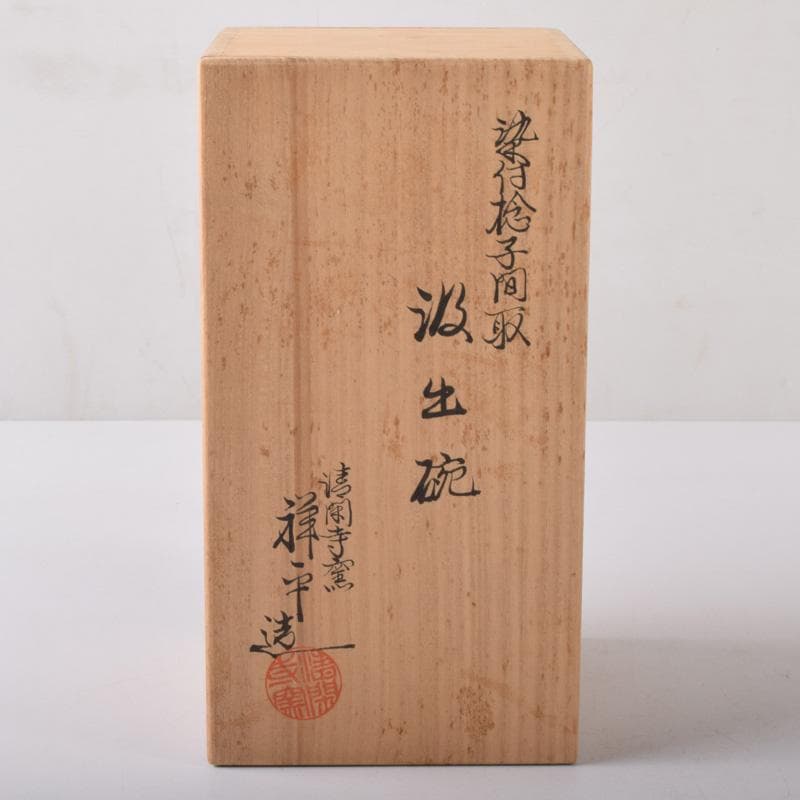 染付捻子間取
汲出碗
清閑寺窯
祥平造
清閑寺窯